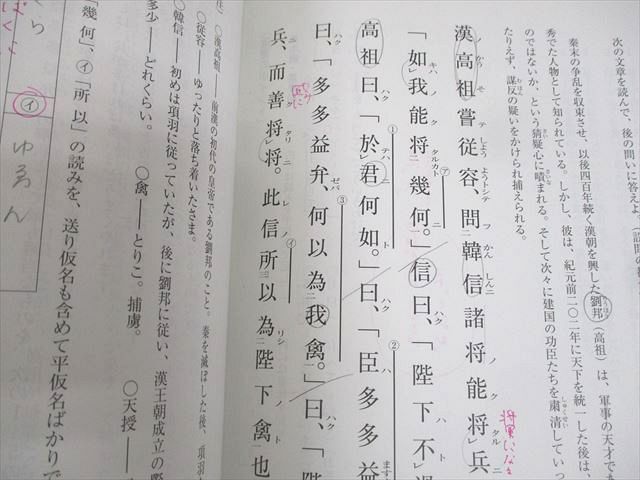 次の文章を読んで、後の問いに答えよ
秦末の争乱を収束させ、以後四百年続く漢朝を興した劉邦（高祖）は、軍事の天才で
秀でた人物として知られている。しかし、彼は、紀元前二〇二年に天下を統一した後は、
のではないか、という猜疑心に嘖まれる。そして次々に建国の功臣たちを粛清していっ
たりえず、謀反の疑いをかけられ捕えられる。
漢高祖嘗従容問韓信諸将能将兵
「如我能将幾何。」信曰、「陛下不過
高祖曰、「於君何如。」曰、「臣多多益
曰、「多多益弁、何以為我禽。」曰、「陛
兵、而善将将。此信所以為陛下禽也
○漢高祖――前漢の初代の皇帝である劉邦のこと。秦を滅ぼした後、項羽
○従容――ゆったりと落ち着いたさま。
○韓信――初めは項羽に従っていたが、後に劉邦に従い、漢王朝成立の
多少――どれくらい。 ○禽――とりこ。捕虜。 ○天授――
「幾何」、㋑「所以」の読みを、送り仮名も含めて平仮名ばかりで
㋑ ゆゑん